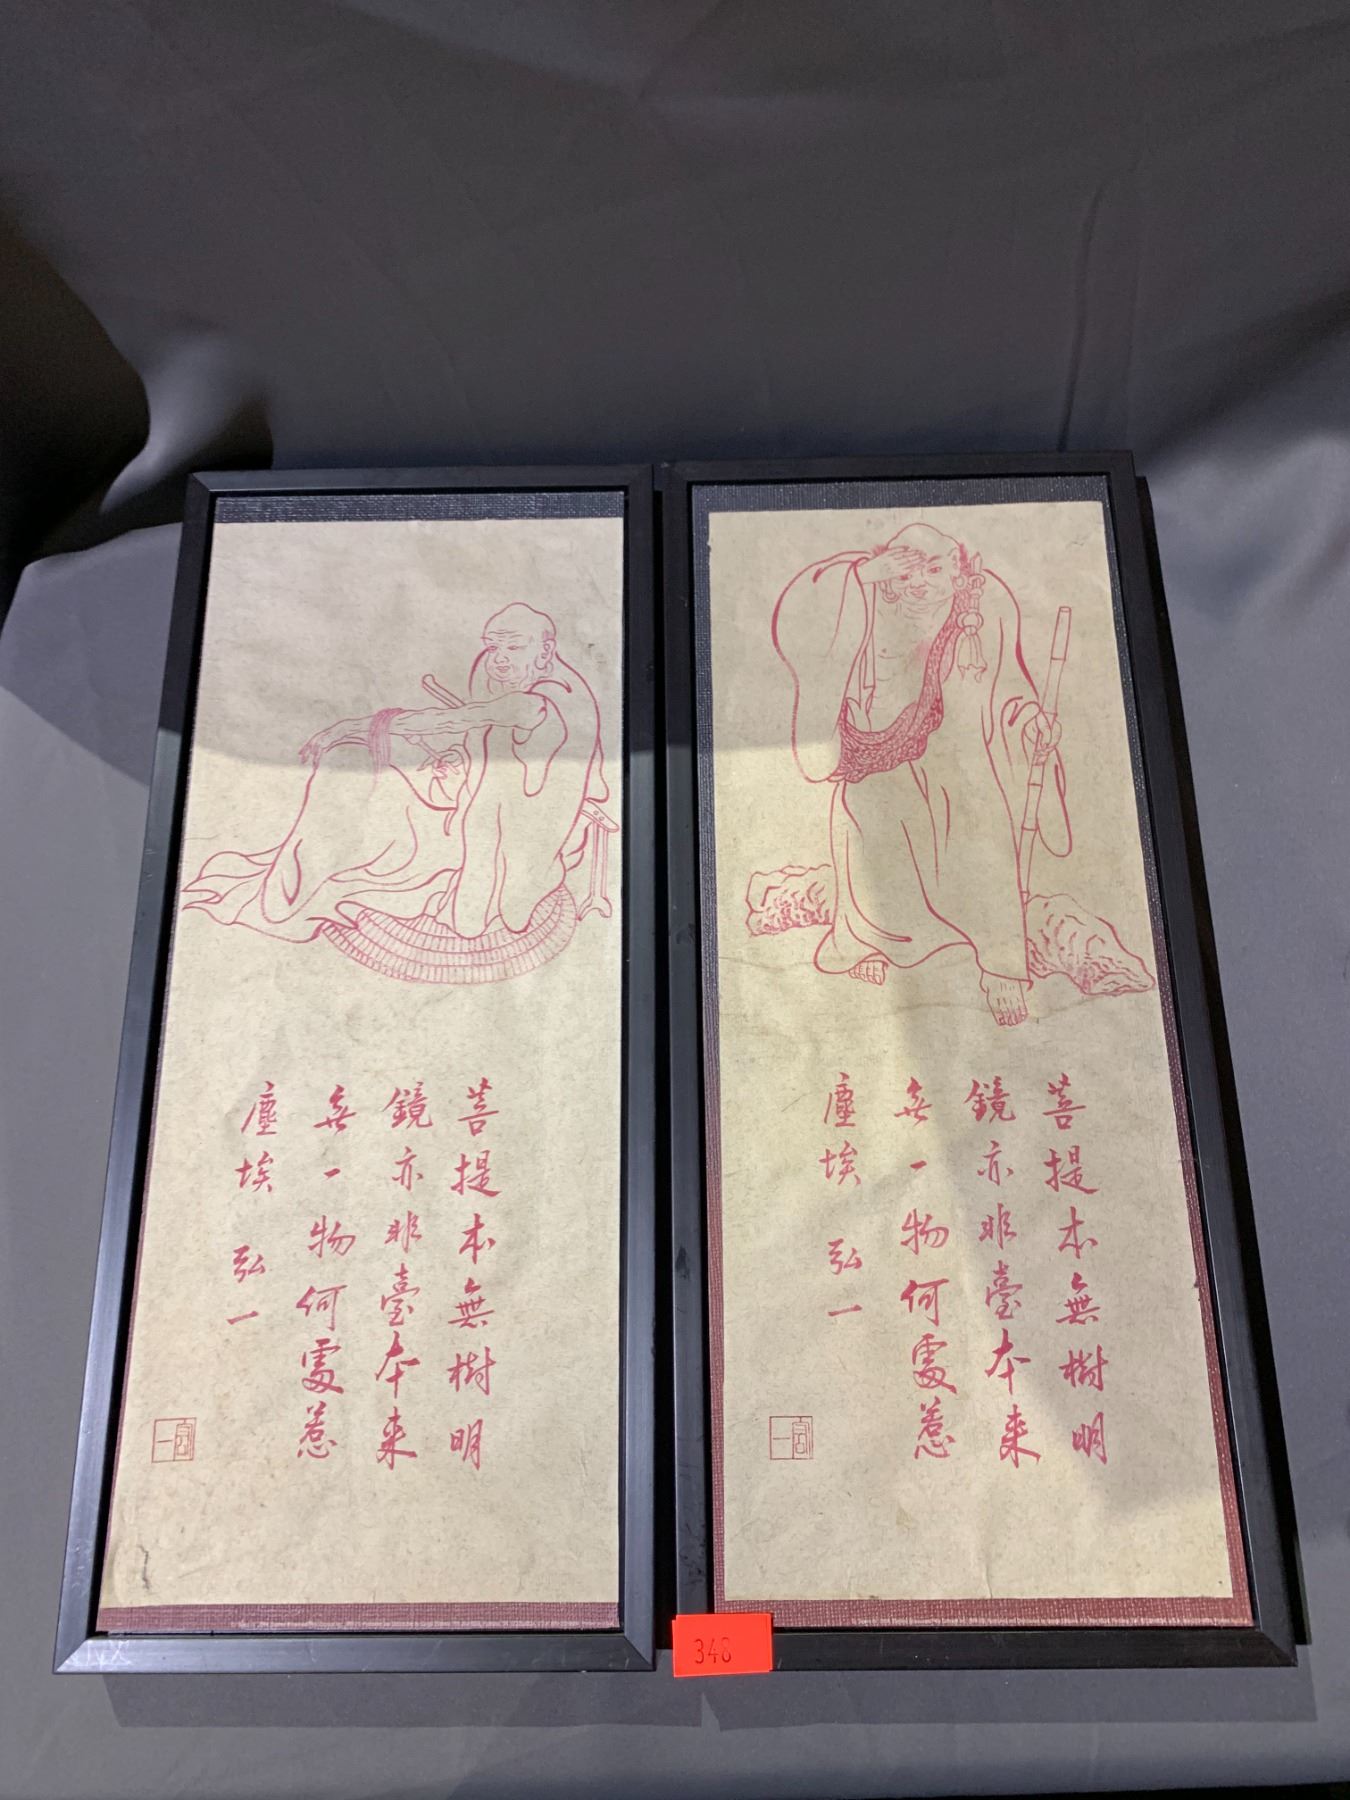 菩提本無樹明
鏡亦非臺本来
無一物何處惹
塵埃 弘一
菩提本無樹明
鏡亦非臺本来
無一物何處惹
塵埃 弘一
348